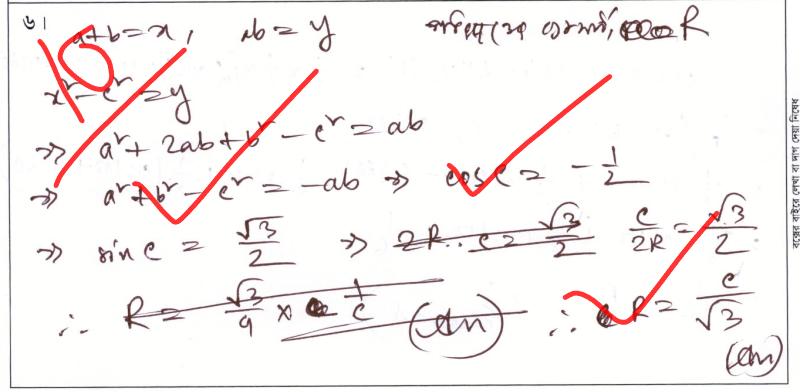 ৬।
a+b=x, ab = y R
x² - c² = y
⇒ a² + 2ab + b² - c² = ab
⇒ a² + b² - c² = -ab ⇒ cos C = -1/2
⇒ sin C = √3/2 ⇒ 2R · c = √3/2 c/2R = √3/2
∴ R = √3/9 × 1/c (Ans) ∴ R = c/√3
(Ans)
10
বক্সের বাইরে লেখা বা দাগ দেয়া নিষেধ